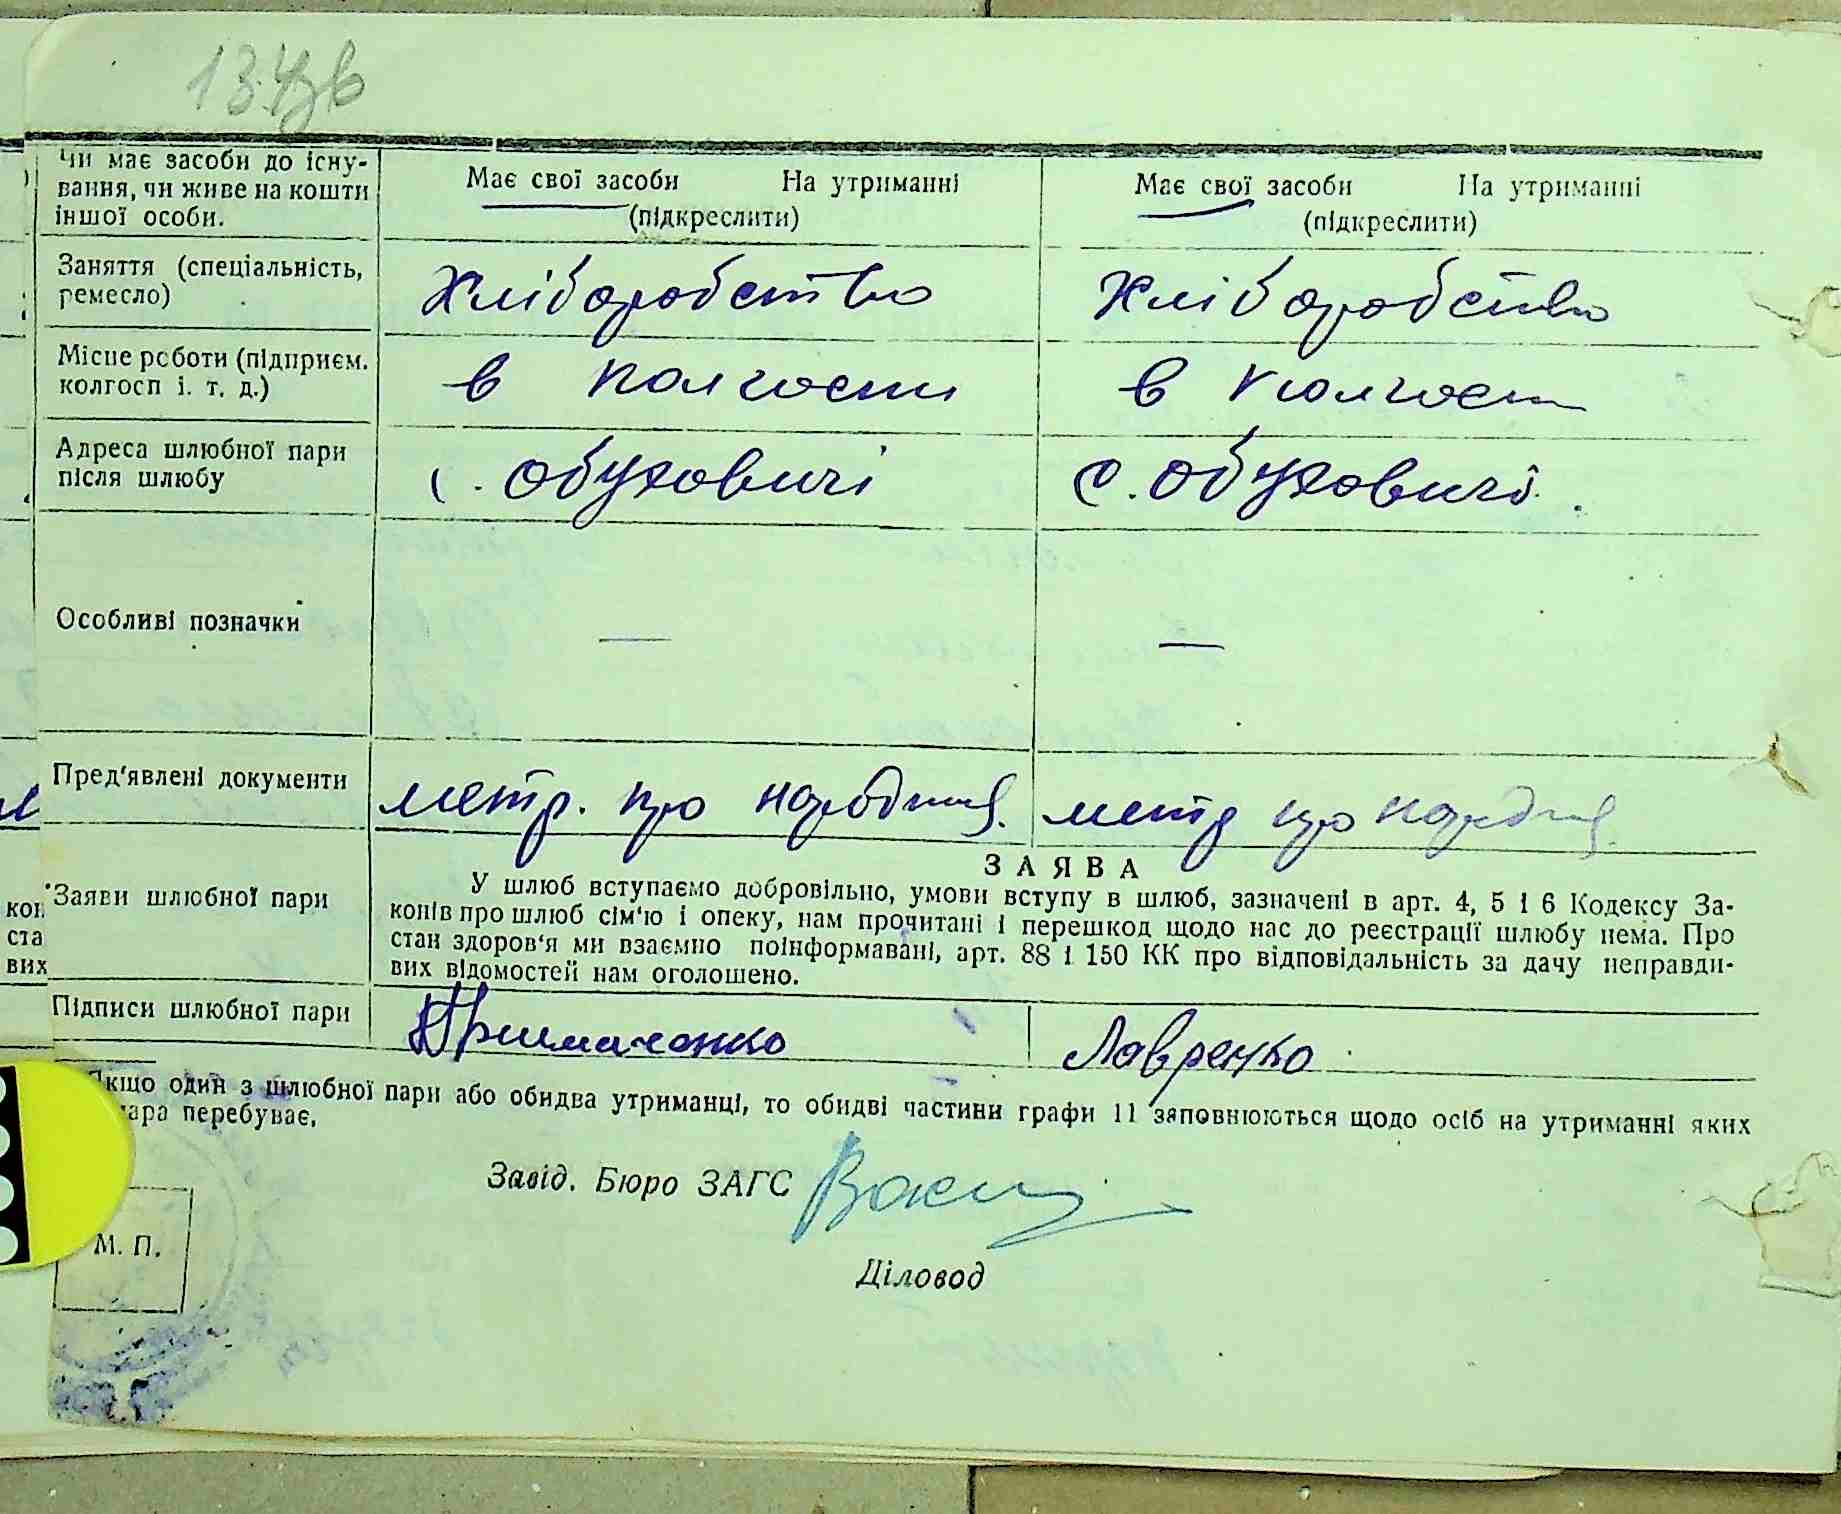 134зв
Чи має засоби до існу-
вання, чи живе на кошти
іншої особи.
Має свої засоби На утриманні
(підкреслити)
Має свої засоби На утриманні
(підкреслити)
Заняття (спеціальність,
ремесло)
Хліборобство
Хліборобство
Місце роботи (підприєм.
колгосп і. т. д.)
в колгоспі
в колгосп
Адреса шлюбної пари
після шлюбу
с. Обуховичі
с. Обуховичі.
Особливі позначки
—
—
Пред'явлені документи
метр. про народжня.
метр про народжня.
Заяви шлюбної пари
ЗАЯВА
У шлюб вступаємо добровільно, умови вступу в шлюб, зазначені в арт. 4, 5 і 6 Кодексу За-
конів про шлюб сім'ю і опеку, нам прочитані і перешкод щодо нас до реєстрації шлюбу нема. Про
стан здоров'я ми взаємно поінформавані, арт. 88 і 150 КК про відповідальність за дачу неправди-
вих відомостей нам оголошено.
Підписи шлюбної пари
Примаченко
Лавренко
Якщо один з шлюбної пари або обидва утриманці, то обидві частини графи 11 заповнюються щодо осіб на утриманні яких
пара перебуває.
Завід. Бюро ЗАГС
Діловод
М. П.
кон
ста
вих